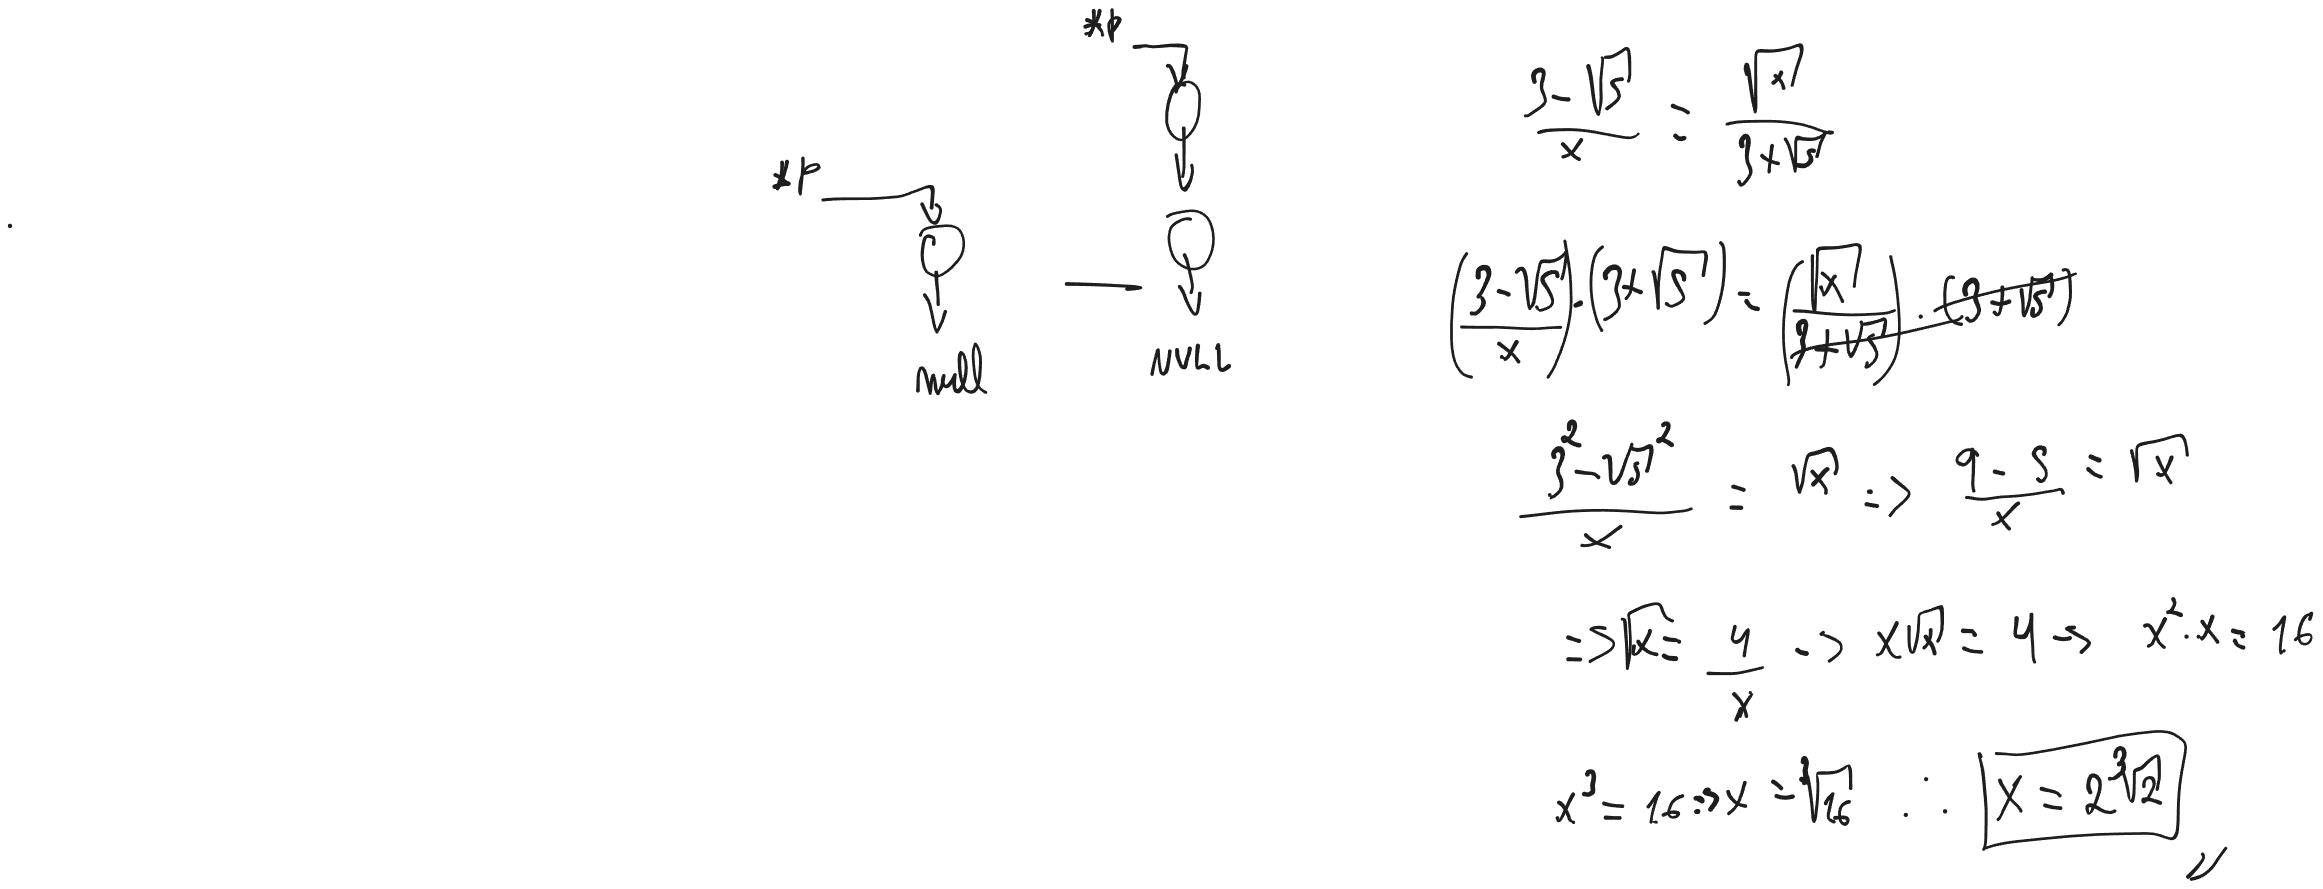 *p
*p
null
NULL
(3-√5)/x = √x/(3+√5)
((3-√5)/x)·(3+√5) = (√x/(3+√5))·(3+√5)
(3²-√5²)/x = √x => (9-5)/x = √x
=> √x = 4/x -> x√x = 4 -> x²·x = 16
x³ = 16 => x = ³√16 ∴ x = 2³√2